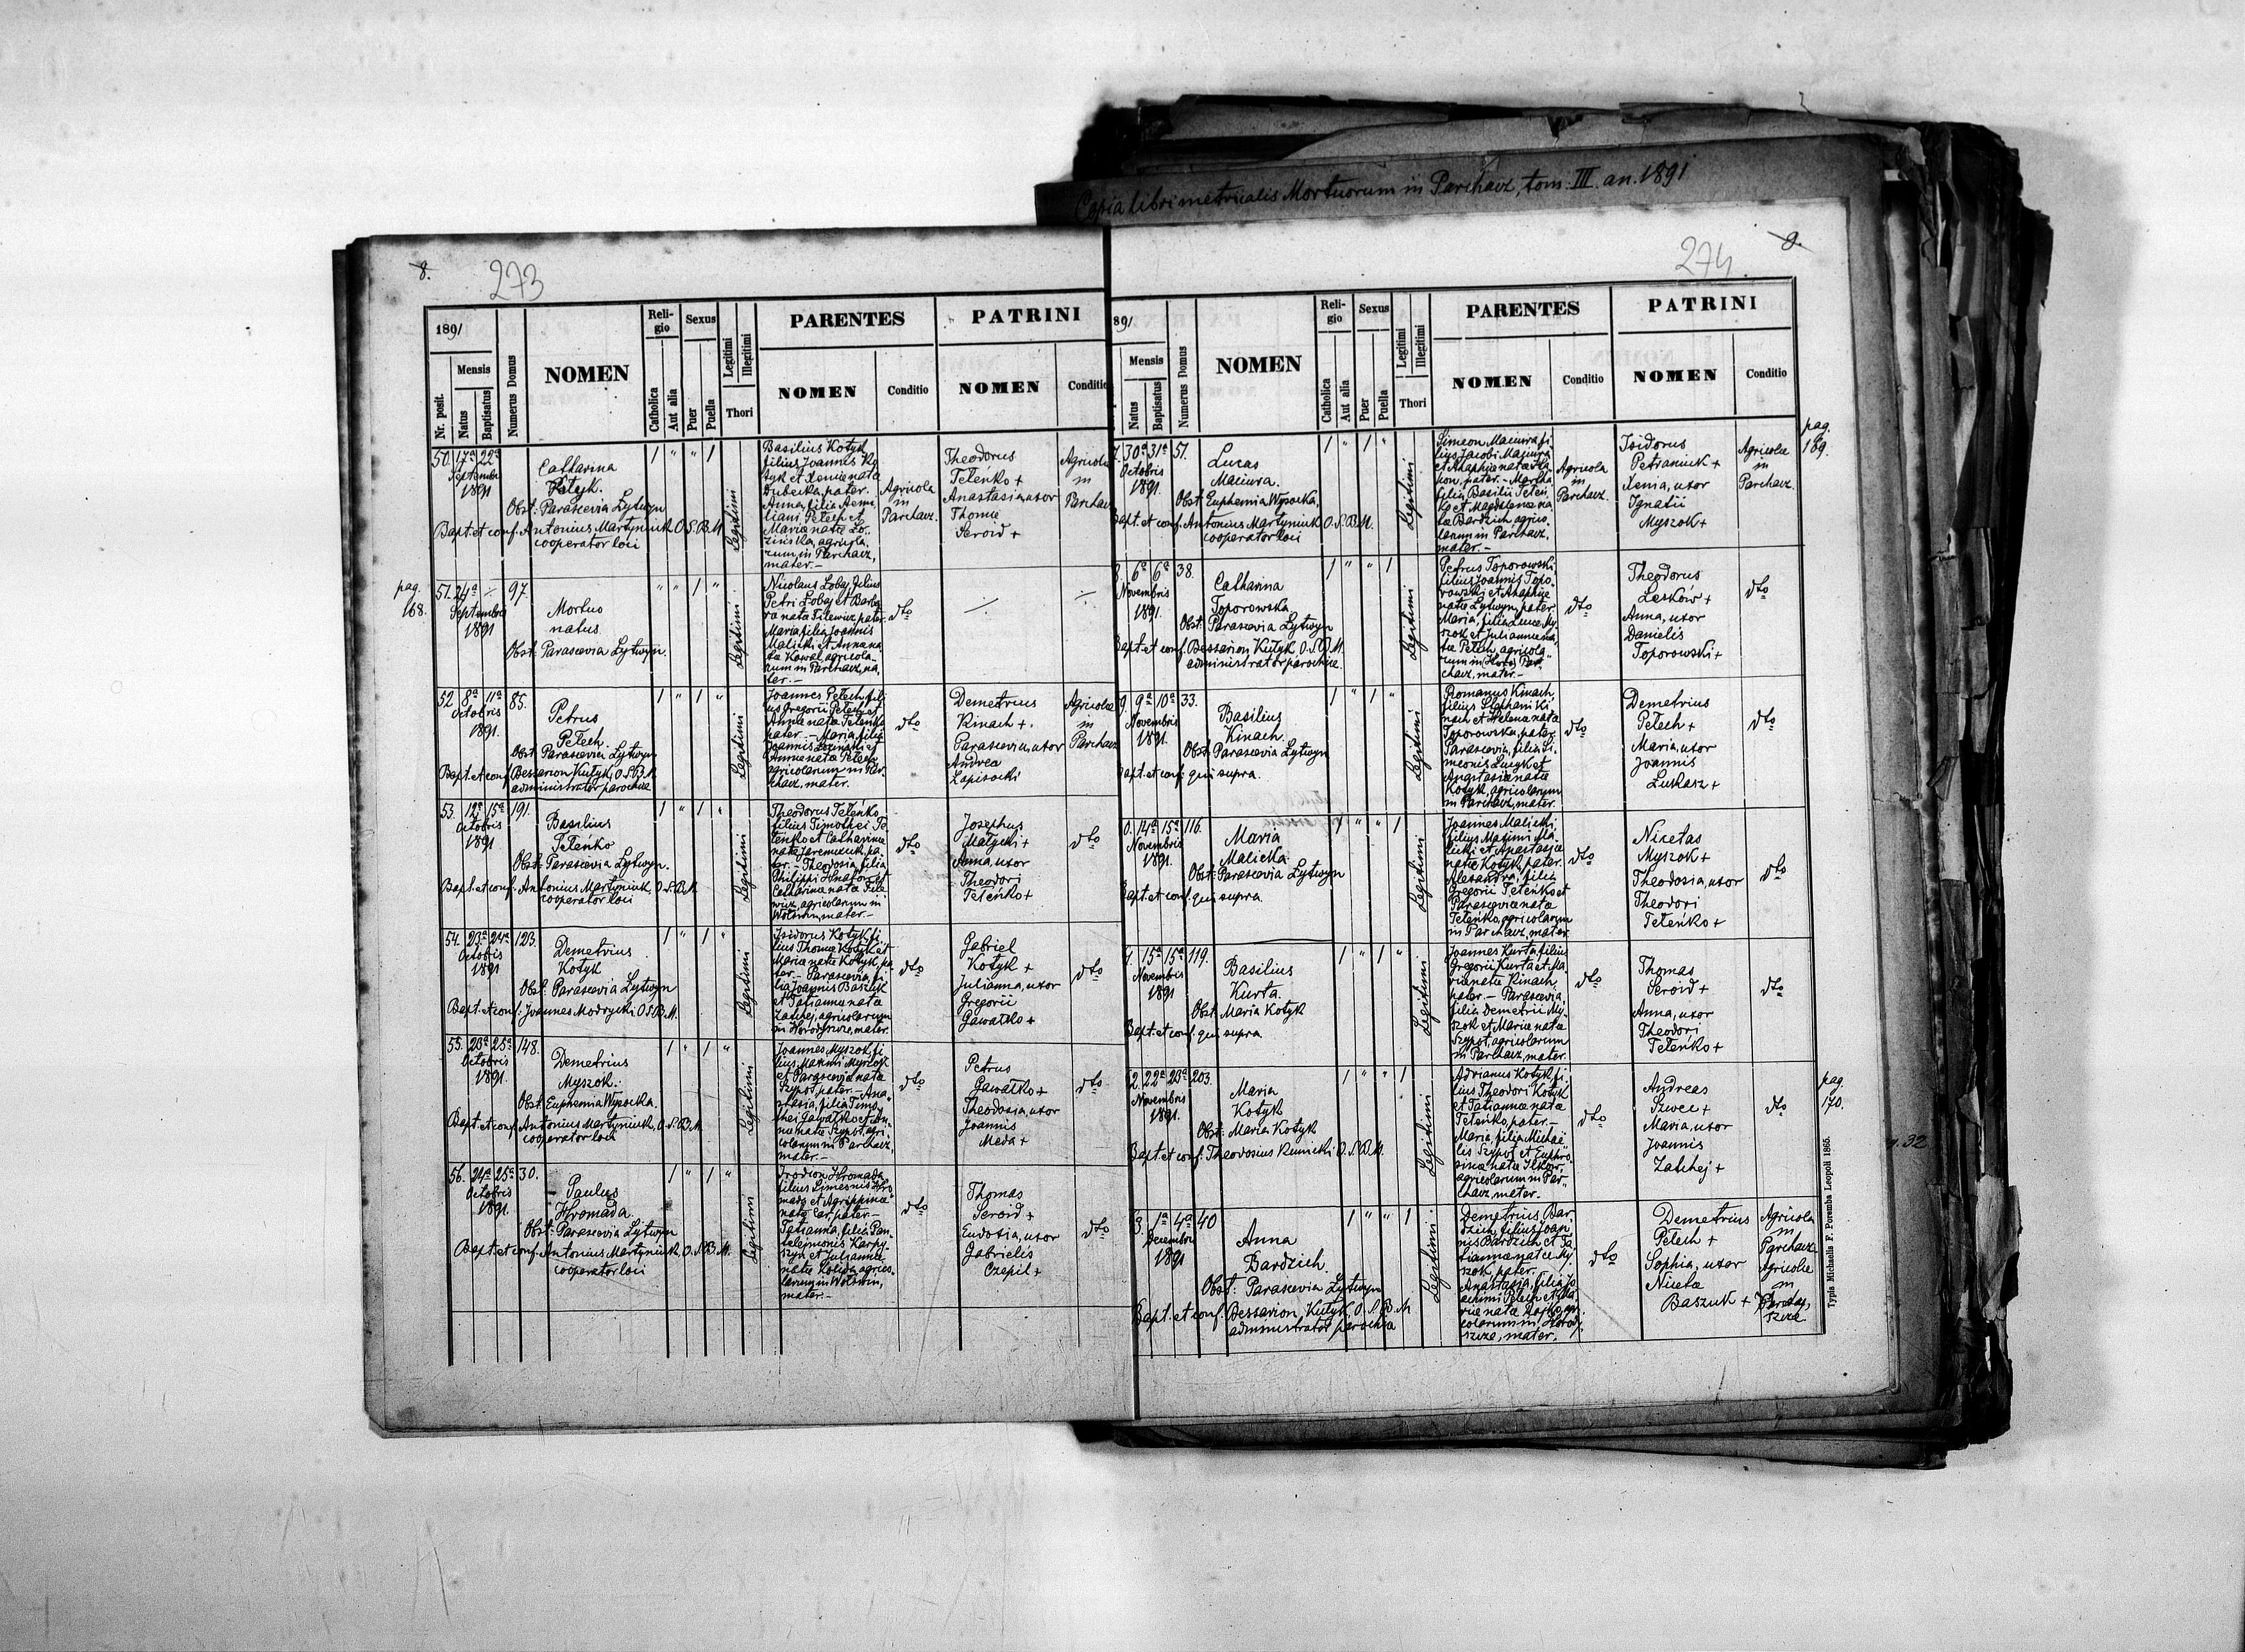 Copia libri metricalis Mortuorum in Parchacz, tom. III. an. 1891
8.
273
1891
Nr. posit.
Mensis
Natus
Baptisatus
Numerus Domus
NOMEN
Religio
Catholica
Aut alia
Sexus
Puer
Puella
Legitimi
Illegitimi
Thori
PARENTES
NOMEN
Conditio
PATRINI
NOMEN
Conditio
50. 17ª 22ª
Septembris
1891
Catharina
Kotyk.
Obst: Parascevia Lytwyn
Bapt. et conf. Antonius Martyniuk O. S. B. M.
cooperator loci
1 " " 1
Legitimi
Basilius Kotyk
filius Joannis Ko
tyk et Xenia nata
Dubecka, pater.
Anna, filia Aemi
liani Petech et
Maria nata Lo-
zinska, agricola
rum, in Parchacz,
mater.-
Agricola
in
Parchacz.
Theodorus
Teteńko +
Anastasia, uxor
Thomae
Seroid +
Agricolae
in
Parchacz
pag.
168.
51. 24ª ÷ 97.
Septembris
1891
Mortuo
natus.
Obst: Parascevia Lytwyn.
" " 1 "
Legitimi
Nicolaus Lobaj, filius
Petri Lobaj et Barba
ra nata Filewicz, pater.
Maria filia Joannis
Malicki et Anna na
ta Kowal, agricola-
rum in Parchacz, ma
ter.-
dto
÷
÷
52. 8ª 11ª 85.
Octobris
1891.
Petrus
Petech
Obst: Parascevia Lytwyn
Bapt. et conf. Bessarion Kutyk, O. S. B. M.
administrator parochiae
1 " 1 "
Legitimi
Joannes Petech, fili
us Gregorii Petech et
Anna nata Teteńko
pater.- Maria, filia
Joannis Lozinski et
Anna nata Petech
agricolarum in Par-
chacz, mater.
dto
Demetrius
Kinach +.
Parascevia, uxor
Andrea
Zapisocki
Agricolae
in
Parchacz
53. 12ª 15ª 191.
Octobris
1891
Basilius
Teteńko
Obst: Parascevia Lytwyn.
Bapt. et conf. Antonius Martyniuk, O. S. B. M.
cooperator loci
1 " 1 "
Legitimi
Theodorus Teteńko
filius Timothei Te
teńko et Catharinae
nata Jaremczuk, pa
ter.- Theodosia, filia
Philippi Hnatow et
Catharina nata File
wicz, agricolarum in
Wolswin, mater.-
dto
Josephus
Matycki +
Anna, uxor
Theodori
Teteńko +
dto
54. 23ª 24ª 123.
Octobris
1891
Demetrius
Kotyk
Obst: Parascevia Lytwyn
Bapt. et conf: Joannes Modrycki O S B. M.
1 " 1 "
Legitimi
Isidorus Kotyk, fi
lius Thomae Kotyk et
Maria nata Kotyk, pa
ter.- Parascevia, fi
lia Joannis Baszuk
et Tatianna nata
Zatchej, agricolarum
in Horodyszcze, mater.
dto
Gabriel
Kotyk +
Julianna, uxor
Gregorii
Gawatko +
dto
55. 23ª 25ª 148.
Octobris
1891.
Demetrius
Myszok.
Obst: Euphemia Wysocka.
Bapt. et conf. Antonius Martyniuk, O. S. B. M.
cooperator loci
1 " 1 "
Legitimi
Joannes Myszok, fi
lius Maximi Myszok
et Parascevia nata
Szypot, pater.- Ana-
stasia, filia Timo
thei Gawatko et An-
na nata Szypot, agri
colarum in Parchacz,
mater.-
dto
Petrus
Gawatko +
Theodosia, uxor
Joannis
Meda +
dto
56. 24ª 25ª 30.
Octobris
1891.
Paulus
Hromada.
Obst: Parascevia Lytwyn
Bapt. et conf. Antonius Martyniuk, O. S. B. M.
cooperator loci
1 " 1 "
Legitimi
Irodion Hromada
filius Simeonis Hro
mada et Agrippina
nata Car, pater.-
Tatianna, filia Pan
teleimonis Karpy-
szyn et Julianna
nata Kolida, agrico-
larum in Wolswin,
mater.-
dto
Thomas
Seroid +
Eudosia, uxor
Gabrielis
Czepil +
dto
9.
274
891
Mensis
Natus
Baptisatus
Numerus Domus
NOMEN
Religio
Catholica
Aut alia
Sexus
Puer
Puella
Legitimi
Illegitimi
Thori
PARENTES
NOMEN
Conditio
PATRINI
NOMEN
Conditio
7. 30ª 31ª 51.
Octobris
1891.
Lucas
Maciura.
Obst: Euphemia Wysocka.
Bapt. et conf. Antonius Martyniuk O. S. B. M.
cooperator loci
1 " 1 "
Legitimi
Simeon Maciura fi
lius Jacobi Maciura
et Ahaphia nata Ha
pon, pater.- Martha
filia Basilii Teteń
ko et Magdalena na
ta Bardzich agrico-
larum in Parchacz,
mater.-
Agricola
in
Parchacz.
Isidorus
Petraniuk +
Xenia, uxor
Ignatii
Myszok +
Agricolae
in
Parchacz.
pag.
169.
8. 6ª 6ª 38.
Novembris
1891.
Catharina
Toporowska
Obst: Parascevia Lytwyn
Bapt. et conf. Bessarion Kutyk, O. S. B. M.
administrator parochiae.
1 " " 1
Legitimi
Petrus Toporowski
filius Joannis Topo-
rowski et Ahaphia
nata Lytwyn, pater.
Maria, filia Lucae My-
szok et Julianna na
ta Petech, agricola-
rum in Par
chacz, mater.-
dto
Theodorus
Leskow +
Anna, uxor
Danielis
Toporowski +
dto
9. 9ª 10ª 33.
Novembris
1891.
Basilius
Kinach.
Obst: Parascevia Lytwyn
Bapt. et conf: qui supra.
1 " 1 "
Legitimi
Romanus Kinach,
filius Stephani Ki
nach et Helena nata
Toporowska, pater.
Parascevia, filia Si-
meonis Lucyk et
Anastasia nata
Kotyk, agricolarum
in Parchacz, mater.
dto
Demetrius
Petech +
Maria, uxor
Joannis
Lukasz +
dto
0. 14ª 15ª 116.
Novembris
1891.
Maria
Malicka
Obst: Parascevia Lytwyn
Bapt. et conf. qui supra.
1 " " 1
Legitimi
Joannes Malicki,
filius Maximi Ma-
licki et Anastasia
nata Kotyk, pater.
Alexandra, filia
Gregorii Teteńko et
Parascevia nata
Teteńko, agricolarum
in Parchacz, mater
dto
Nicetas
Myszok +
Theodosia, uxor
Theodori
Teteńko +
dto
1. 15ª 15ª 119.
Novembris
1891
Basilius
Kurta.
Obst: Maria Kotyk
Bapt. et conf. qui supra.
1 " 1 "
Legitimi
Joannes Kurta, filius
Gregorii Kurta et Ma
ria nata Kinach,
pater.- Parascevia,
filia Demetrii My-
szok et Maria nata
Szypot, agricolarum
in Parchacz, mater.
dto
Thomas
Seroid +
Anna, uxor
Theodori
Teteńko +
dto
2. 22ª 23ª 203.
Novembris
1891.
Maria
Kotyk
Obst: Maria Kotyk
Bapt. et conf. Theodosius O. S. B. M.
1 " " 1
Legitimi
Adrianus Kotyk, fi
lius Theodori Kotyk
et Tatianna nata
Teteńko, pater.-
Maria, filia Michaë
lis Szypot et Euphro-
sina nata Ilkow,
agricolarum in Par-
chacz, mater.-
dto
Andreas
Szwec +
Maria, uxor
Joannis
Zatchej +
dto
pag.
170.
3. 1ª 4ª 40
Decembris
1891
Anna
Bardzich.
Obst: Parascevia Lytwyn
Bapt. et conf. Bessarion Kutyk, O. S. B. M
administrator parochia
1 " " 1
Legitimi
Demetrius Bar-
dzich, filius Joan
nis Bardzich et Ta
tianna nata My-
szok, pater.
Anastasia, filia Jo
achimi Petech et Ma
ria nata agri
colarum in Horody
szcze, mater.
dto
Demetrius
Petech +
Sophia, uxor
Nicetae
Baszuk +
Agricola
in
Parchacz
Agricolae
in
Horody
szcze
Typis Michaelis F. Poremba Leopoli 1865.
32